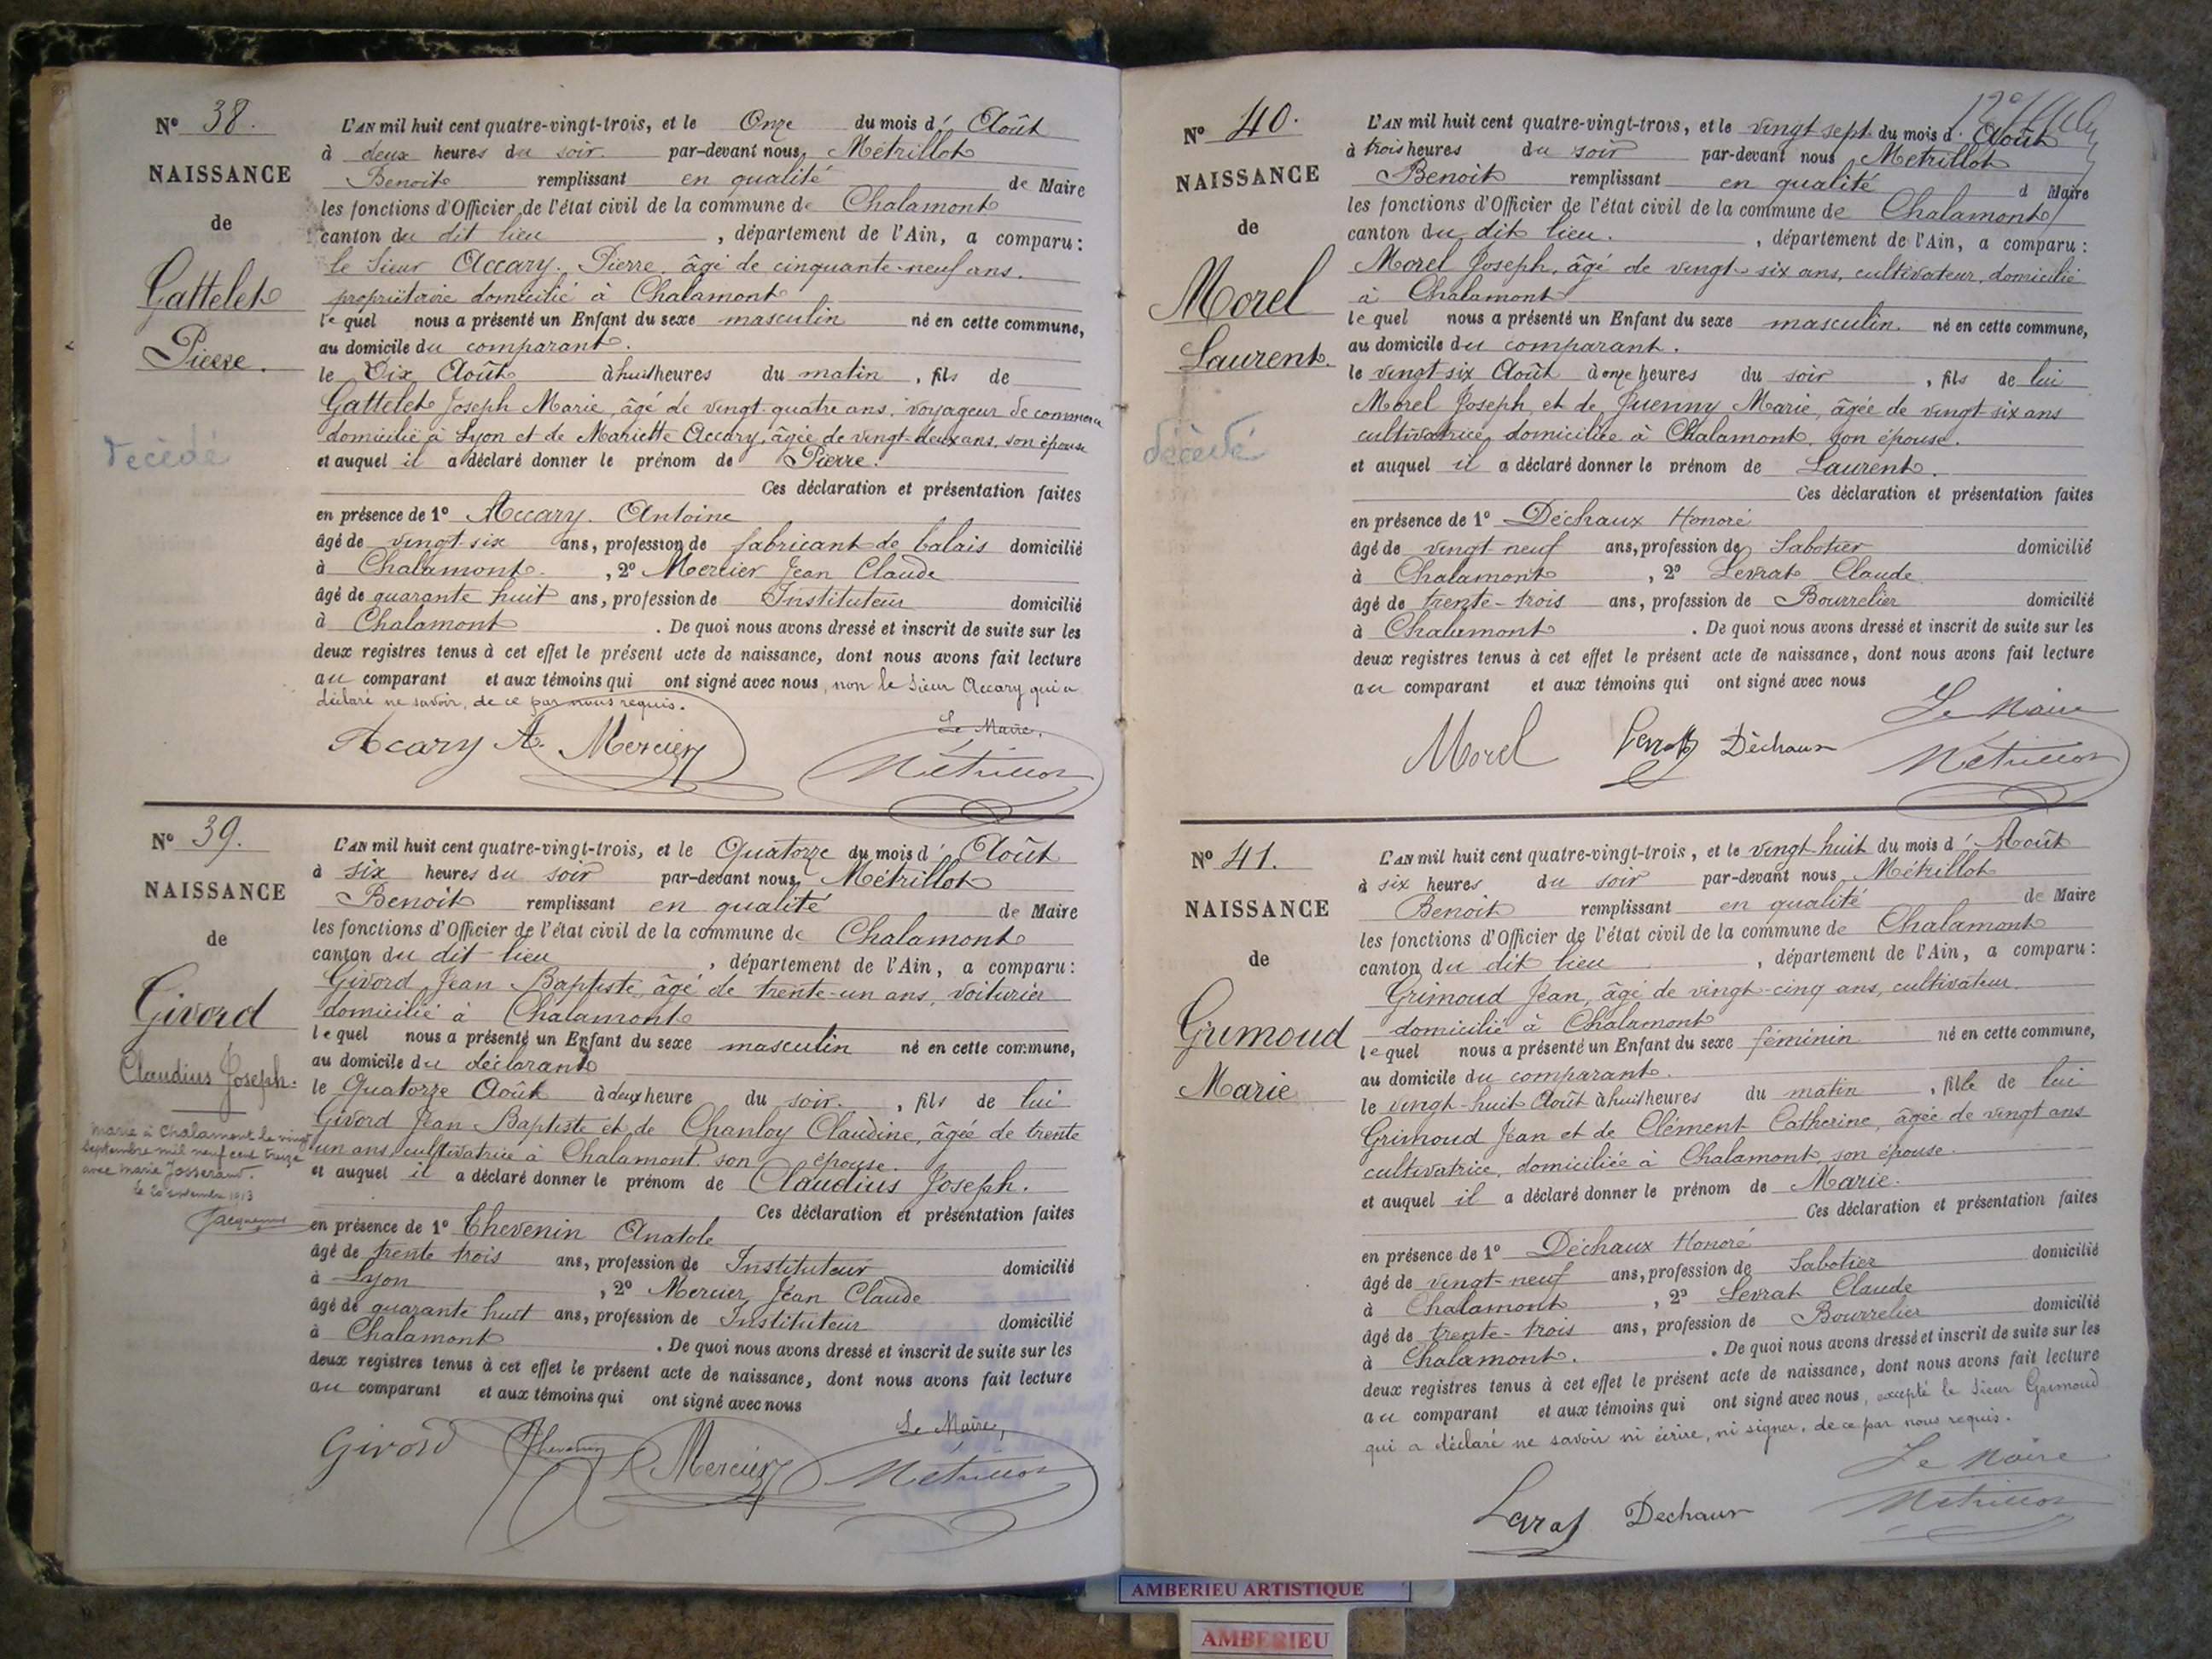 N° 38.
NAISSANCE
de
Gattelet
Pierre.
décédé
L'AN mil huit cent quatre-vingt-trois, et le Onze du mois d' Août
à deux heures du soir par-devant nous, Métrillot
Benoit remplissant en qualité de Maire
les fonctions d'Officier de l'état civil de la commune de Chalamont
canton du dit lieu, département de l'Ain, a comparu:
le Sieur Accary Pierre, âgé de cinquante-neuf ans.
propriétaire domicilié à Chalamont
lequel nous a présenté un Enfant du sexe masculin né en cette commune,
au domicile du comparant.
le Dix Août à huit heures du matin, fils de
Gattelet Joseph Marie, âgé de vingt-quatre ans, voyageur de commerce
domicilié à Lyon et de Mariette Accary, âgée de vingt-deux ans, son épouse
et auquel il a déclaré donner le prénom de Pierre.
Ces déclaration et présentation faites
en présence de 1° Accary Antoine
âgé de vingt-six ans, profession de fabricant de balais domicilié
à Chalamont, 2° Mercier Jean Claude
âgé de quarante huit ans, profession de Instituteur domicilié
à Chalamont. De quoi nous avons dressé et inscrit de suite sur les
deux registres tenus à cet effet le présent acte de naissance, dont nous avons fait lecture
au comparant et aux témoins qui ont signé avec nous, non le Sieur Accary qui a
déclaré ne savoir, de ce par nous requis.
Le Maire,
Acary A. Mercier Métrillot
N° 39.
NAISSANCE
de
Givord
Claudius Joseph.
Marié à Chalamont le vingt
septembre mil neuf cent treize
avec Marie Josserand.
le 20 septembre 1913
Jacquemus
L'AN mil huit cent quatre-vingt-trois, et le Quatorze du mois d' Août
à six heures du soir par-devant nous, Métrillot
Benoit remplissant en qualité de Maire
les fonctions d'Officier de l'état civil de la commune de Chalamont
canton du dit-lieu, département de l'Ain, a comparu:
Givord Jean Baptiste, âgé de trente-un ans, voiturier
domicilié à Chalamont
lequel nous a présenté un Enfant du sexe masculin né en cette commune,
au domicile du déclarant
le Quatorze Août à deux heure du soir, fils de lui
Givord Jean Baptiste et de Chanloy Claudine, âgée de trente
un ans, cultivatrice à Chalamont, son épouse.
et auquel il a déclaré donner le prénom de Claudius Joseph.
Ces déclaration et présentation faites
en présence de 1° Thevenin Anatole
âgé de trente trois ans, profession de Instituteur domicilié
à Lyon, 2° Mercier Jean Claude
âgé de quarante huit ans, profession de Instituteur domicilié
à Chalamont. De quoi nous avons dressé et inscrit de suite sur les
deux registres tenus à cet effet le présent acte de naissance, dont nous avons fait lecture
au comparant et aux témoins qui ont signé avec nous
Le Maire,
Givord Thevenin Mercier Métrillot
N° 40.
NAISSANCE
de
Morel
Laurent.
décédé
L'AN mil huit cent quatre-vingt-trois, et le vingt sept du mois d' Août
à trois heures du soir par-devant nous Métrillot
Benoit remplissant en qualité d Maire
les fonctions d'Officier de l'état civil de la commune de Chalamont
canton du dit lieu., département de l'Ain, a comparu:
Morel Joseph, âgé de vingt-six ans, cultivateur, domicilié
à Chalamont
lequel nous a présenté un Enfant du sexe masculin né en cette commune,
au domicile du comparant.
le vingt-six Août à onze heures du soir, fils de lui
Morel Joseph, et de Juenny Marie, âgée de vingt six ans
cultivatrice, domiciliée à Chalamont, son épouse.
et auquel il a déclaré donner le prénom de Laurent.
Ces déclaration et présentation faites
en présence de 1° Déchaux Honoré
âgé de vingt-neuf ans, profession de Sabotier domicilié
à Chalamont, 2° Levrat Claude
âgé de trente-trois ans, profession de Bourrelier domicilié
à Chalamont. De quoi nous avons dressé et inscrit de suite sur les
deux registres tenus à cet effet le présent acte de naissance, dont nous avons fait lecture
au comparant et aux témoins qui ont signé avec nous
Le Maire
Morel Levrat Déchaux Métrillot
N° 41.
NAISSANCE
de
Grimoud
Marie
L'AN mil huit cent quatre-vingt-trois, et le vingt-huit du mois d' Août
à six heures du soir par-devant nous Métrillot
Benoit remplissant en qualité de Maire
les fonctions d'Officier de l'état civil de la commune de Chalamont
canton du dit lieu, département de l'Ain, a comparu:
Grimoud Jean, âgé de vingt-cinq ans, cultivateur
domicilié à Chalamont
lequel nous a présenté un Enfant du sexe féminin né en cette commune,
au domicile du comparant.
le vingt-huit Août à huit heures du matin, fille de lui
Grimoud Jean et de Clément Catherine, âgée de vingt ans
cultivatrice, domiciliée à Chalamont, son épouse.
et auquel il a déclaré donner le prénom de Marie.
Ces déclaration et présentation faites
en présence de 1° Déchaux Honoré
âgé de vingt-neuf ans, profession de Sabotier domicilié
à Chalamont, 2° Levrat Claude
âgé de trente-trois ans, profession de Bourrelier domicilié
à Chalamont. De quoi nous avons dressé et inscrit de suite sur les
deux registres tenus à cet effet le présent acte de naissance, dont nous avons fait lecture
au comparant et aux témoins qui ont signé avec nous, excepté le Sieur Grimoud
qui a déclaré ne savoir ni écrire, ni signer, de ce par nous requis.
Le Maire
Levrat Dechaux Métrillot
AMBERIEU ARTISTIQUE
AMBERIEU